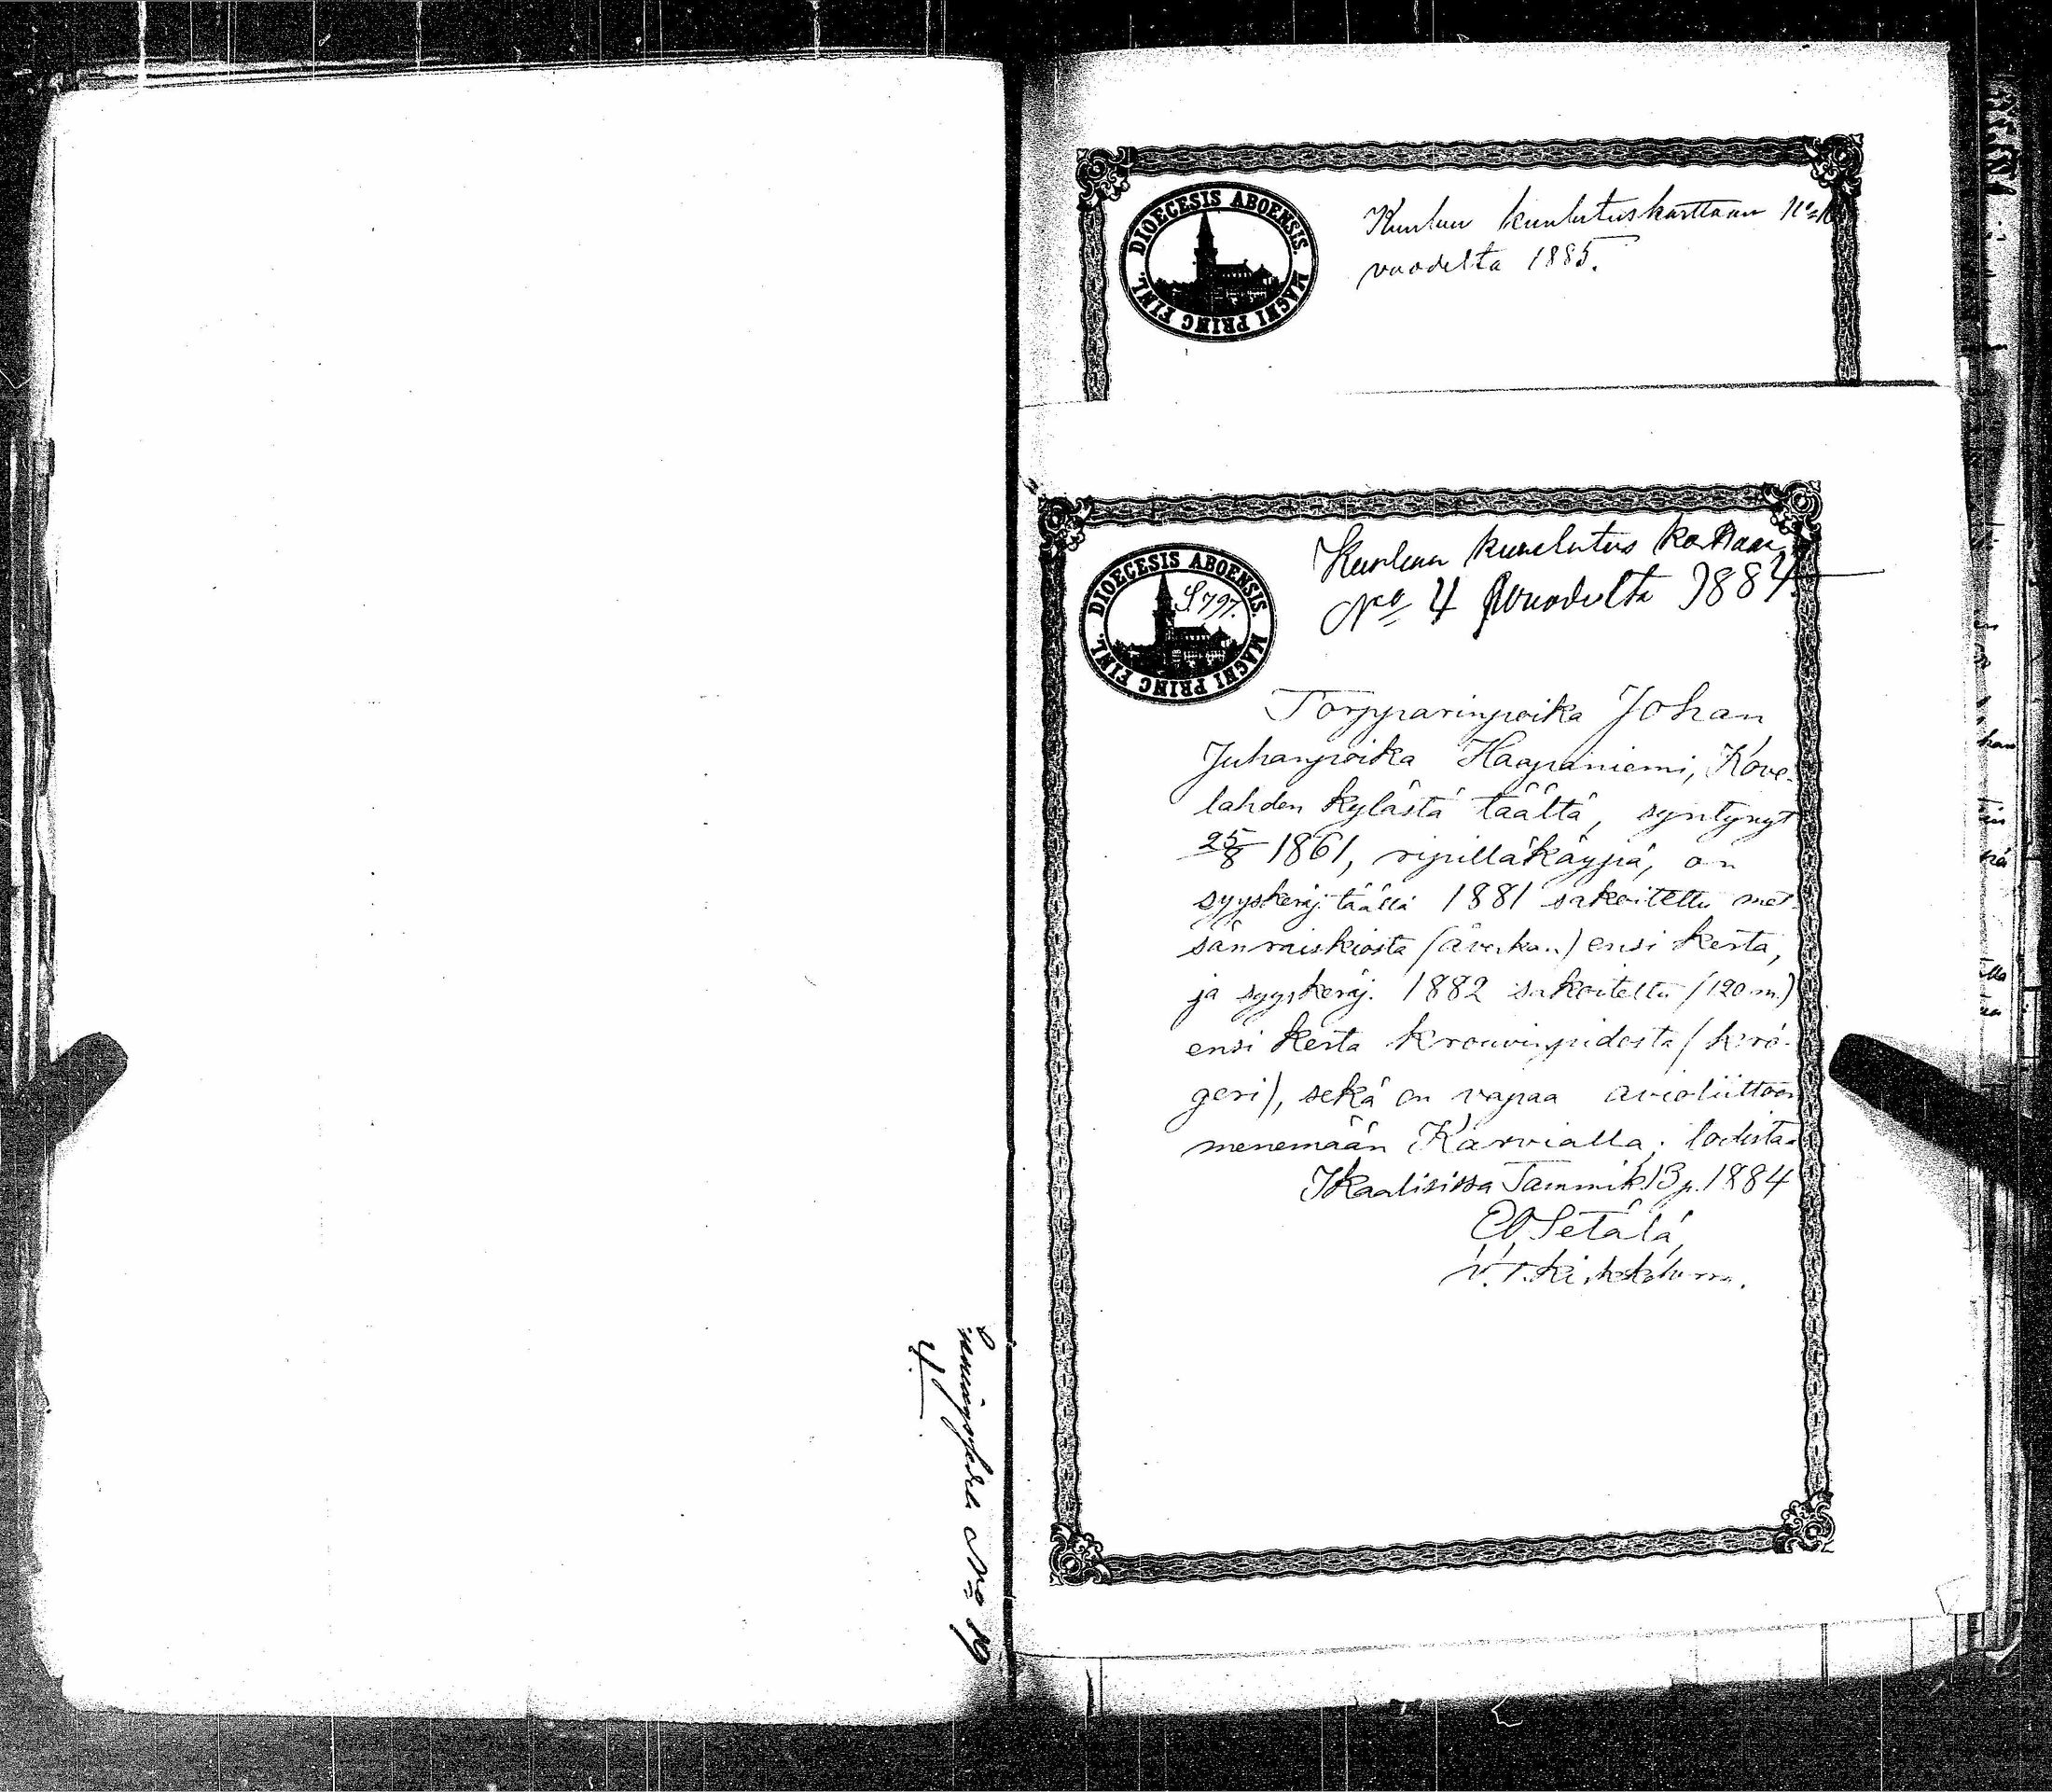 DIOECESIS ABOENSIS. MAGNI PRINC FINL.
Kuuluu kuulutuskarttaan
vuodelta 1885.
DIOECESIS ABOENSIS. MAGNI PRINC FINL.
S 797.
Kuuluu kuulutus karttaan
No 4 vuodelta 1884.
Torpparinpoika Johan
Juhanpoika Haapaniemi, Kove-
lahden kylästä täältä, syntynyt
25/8 1861, ripilläkäypä, on
syyskeräj. täällä 1881 sakoitettu met-
sänraiskiosta (åverkan) ensi kerta,
ja syyskeräj. 1882 sakoitettu (120 m.)
ensi kerta krouvinpidosta (krö-
geri), sekä on vapaa avioliittoon
menemään Karvialla; todistaa
Ikaalisissa Tammik. 13 p. 1884
Setälä,
v. t. kirkkoherra.
No 19
4.